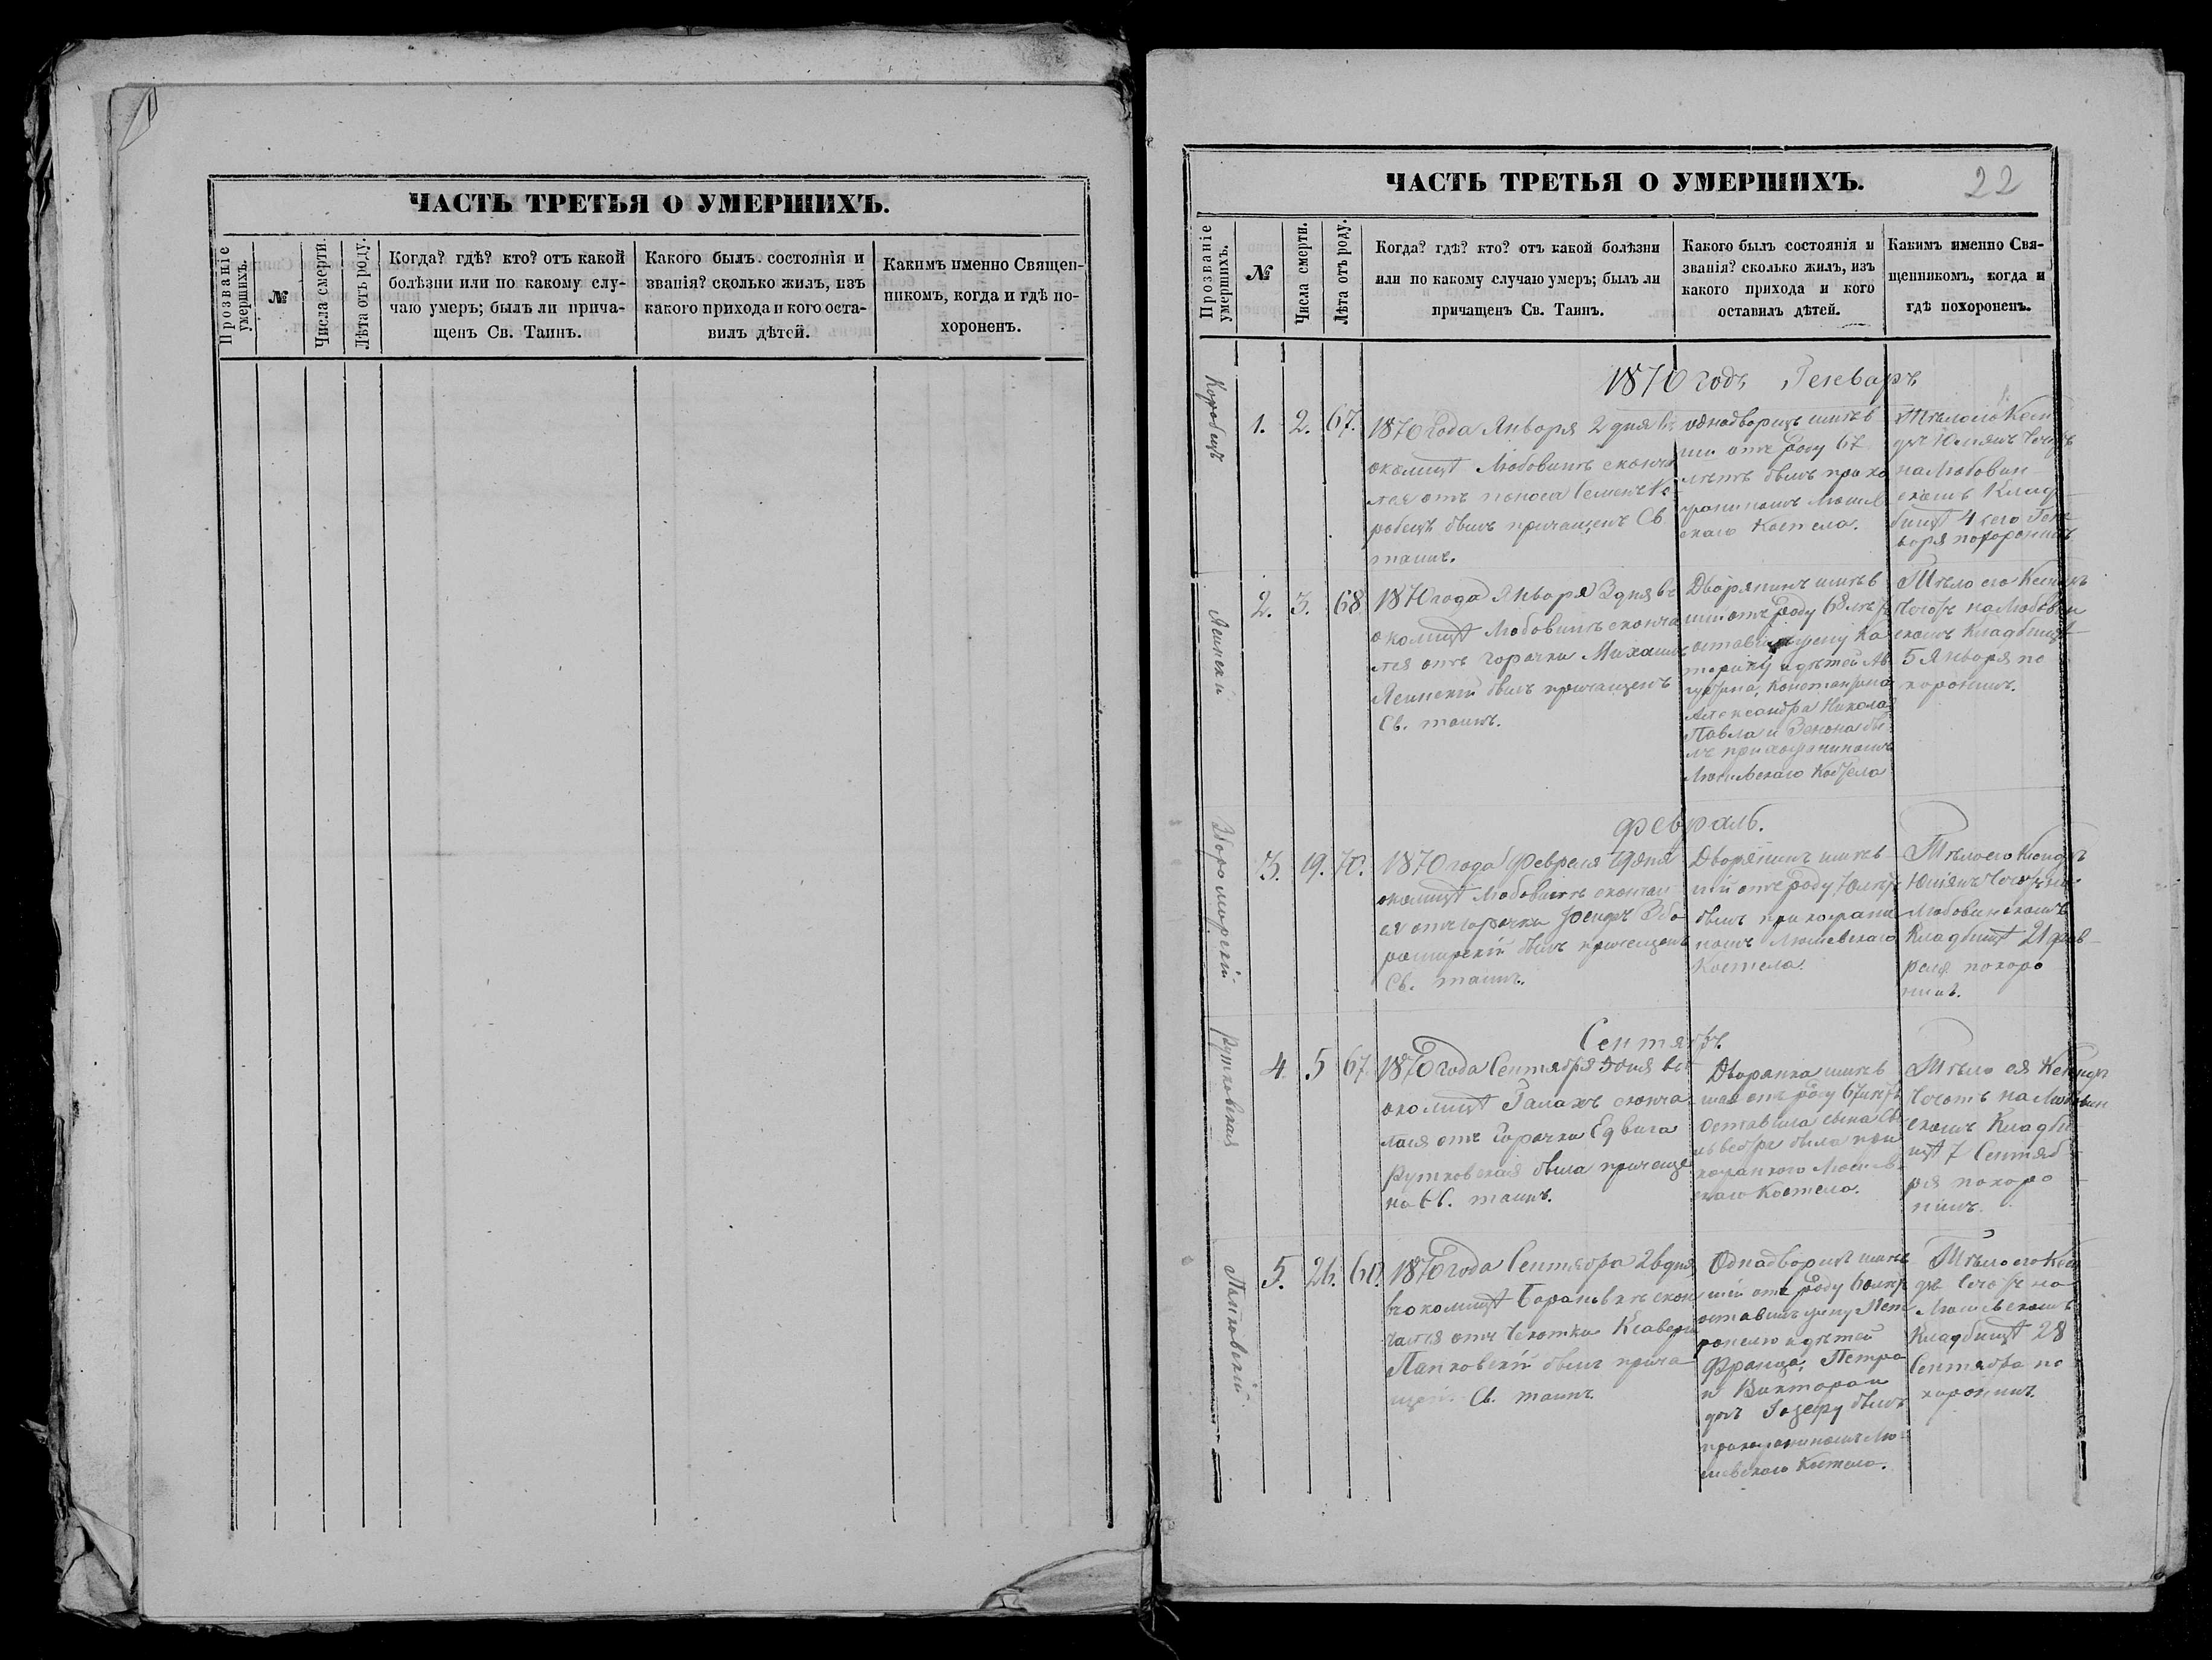 ЧАСТЬ ТРЕТЬЯ О УМЕРШИХЪ.
Прозваніе умершихъ.
№
Числа смерти.
Лѣта отъ роду.
Когда? гдѣ? кто? отъ какой
болѣзни или по какому слу-
чаю умеръ; былъ ли прича-
щенъ Св. Таинъ.
Какого былъ состоянія и
званія? сколько жилъ, изъ
какого прихода и кого оста-
вилъ дѣтей.
Какимъ именно Священ-
никомъ, когда и гдѣ по-
хороненъ.
ЧАСТЬ ТРЕТЬЯ О УМЕРШИХЪ.
22
Прозваніе умершихъ.
№
Числа смерти.
Лѣта отъ роду.
Когда? гдѣ? кто? отъ какой болѣзни
или по какому случаю умеръ; былъ ли
причащенъ Св. Таинъ.
Какого былъ состоянія и
званія? сколько жилъ, изъ
какого прихода и кого
оставилъ дѣтей.
Какимъ именно Свя-
щенникомъ, когда и
гдѣ похороненъ.
1870 годъ Генварь
Коробецъ
1. 2. 67.
1870 года Января 2 дня въ
околицѣ Любовинъ сконча
лся отъ поноса Семенъ Ко
робецъ былъ причащенъ Св.
таинъ.
однодворецъ
отъ роду 67
лѣтъ былъ прихо
жаниномъ
скаго Костела.
Тѣло его
на Любовин
скомъ Клад
бищѣ 4 сего Ген
варя похоронилъ
Ясинскій
2. 3. 68
1870 года Января 3 дня въ
околицѣ Любовинъ сконча
лся отъ горячки Михаилъ
Ясинскій былъ причащенъ
Св. таинъ.
Дворянинъ имѣв
шій отъ роду 68 лѣтъ
оставилъ жену Ка
терину и дѣтей Ав
густина, Константина
Александра Никола
Павла и Зенона бы
лъ прихожаниномъ
скаго Костела
Тѣло его Ксендзъ
на Любовин
скомъ Кладбищѣ
5 Января по
хоронилъ.
Февраль.
3. 19. 70.
1870 года Февраля 19 дня
околицѣ Любовинъ скончал
ся отъ горячки
былъ причащенъ
Св. таинъ.
Дворянинъ имѣв
шій отъ роду 70 лѣтъ
былъ прихожани
номъ
Костела.
Тѣло его Ксендзъ
Любовинскомъ
Кладбищѣ 21 Фев
раля похоро
нилъ.
Сентябрь.
Рутковская
4. 5 67.
1870 года Сентября 5 дня въ
околицѣ сконча
лася отъ Горячки Едвига
Рутковская была причаще
на Св. таинъ.
Дворянка имѣв
шая отъ роду 67 лѣтъ
оставила сына Си
львестра была при
хожанкою
скаго Костела.
Тѣло ея Ксендзъ
на Любовин
скомъ Кладби
щѣ 7 Сентяб
ря похоро
нилъ.
Папковскій
5. 26. 60.
1870 года Сентября 26 дня
въ околицѣ скон
чался отъ Чахотки
Папковскій былъ прича
щенъ Св. таинъ.
Однодворецъ имѣв
шій отъ роду 60 лѣтъ
оставилъ жену Пет
ронелю и дѣтей
Франца, Петра
и Виктора и
дочь Іозефу былъ
прихожаниномъ
Костела.
Тѣло его Ксен
дзъ на
Кладбищѣ 28
Сентября по
хоронилъ.